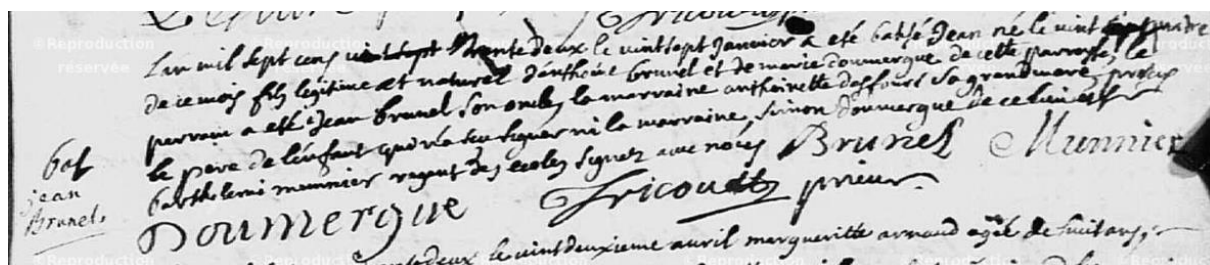 L'an mil sept cens trente deux le vint sept janvier a été batisé Jean né le vint quatre
de ce mois fils legitime et naturel d'anthoine brunel et de marie doumergue de cette parroisse, le
parrain a eté Jean brunel son oncle, la marraine anthoinette daffours sa grand mere, presens
le pere de l'enfant qui n'a seu signer ni la marraine, simon doumergue de ce lieu et
barthelemi meunnier regent des ecoles signez avec nous Brunel Munnier
bat
jean
Brunel
Doumergue Tricou prieur
le vint deuxieme avril margueritte armand agée de huit ans